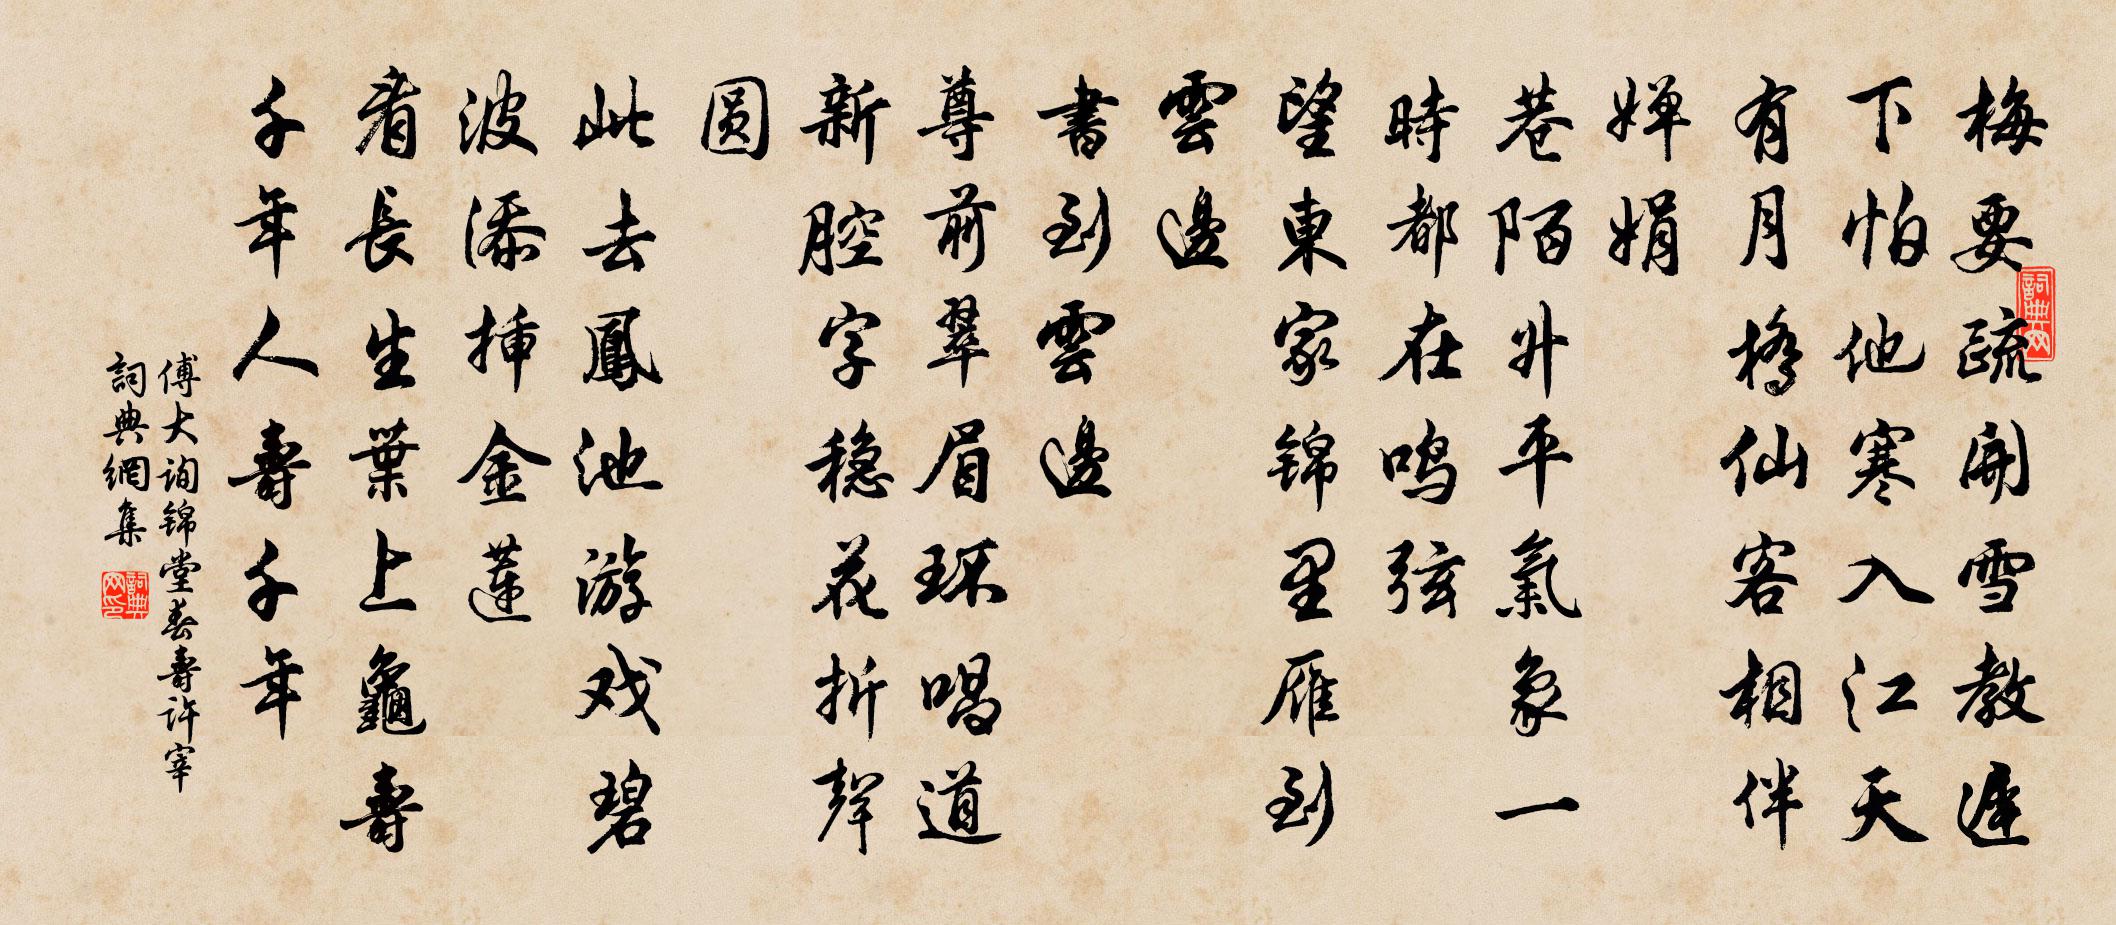 梅要疏開雪教遲
下怕他寒入江天
有月橋仙客相伴
嬋娟
巷陌升平氣象一
時都在鸣弦
望東家锦里雁到
雲邊
書到雲邊
尊前翠眉环唱道
新腔字稳花折聲
圆
此去鳳池游戏碧
波添揷金蓮
看長生葉上龜壽
千年人壽千年
傅大询锦堂春壽许宰
詞典網集
詞典网
詞典网印